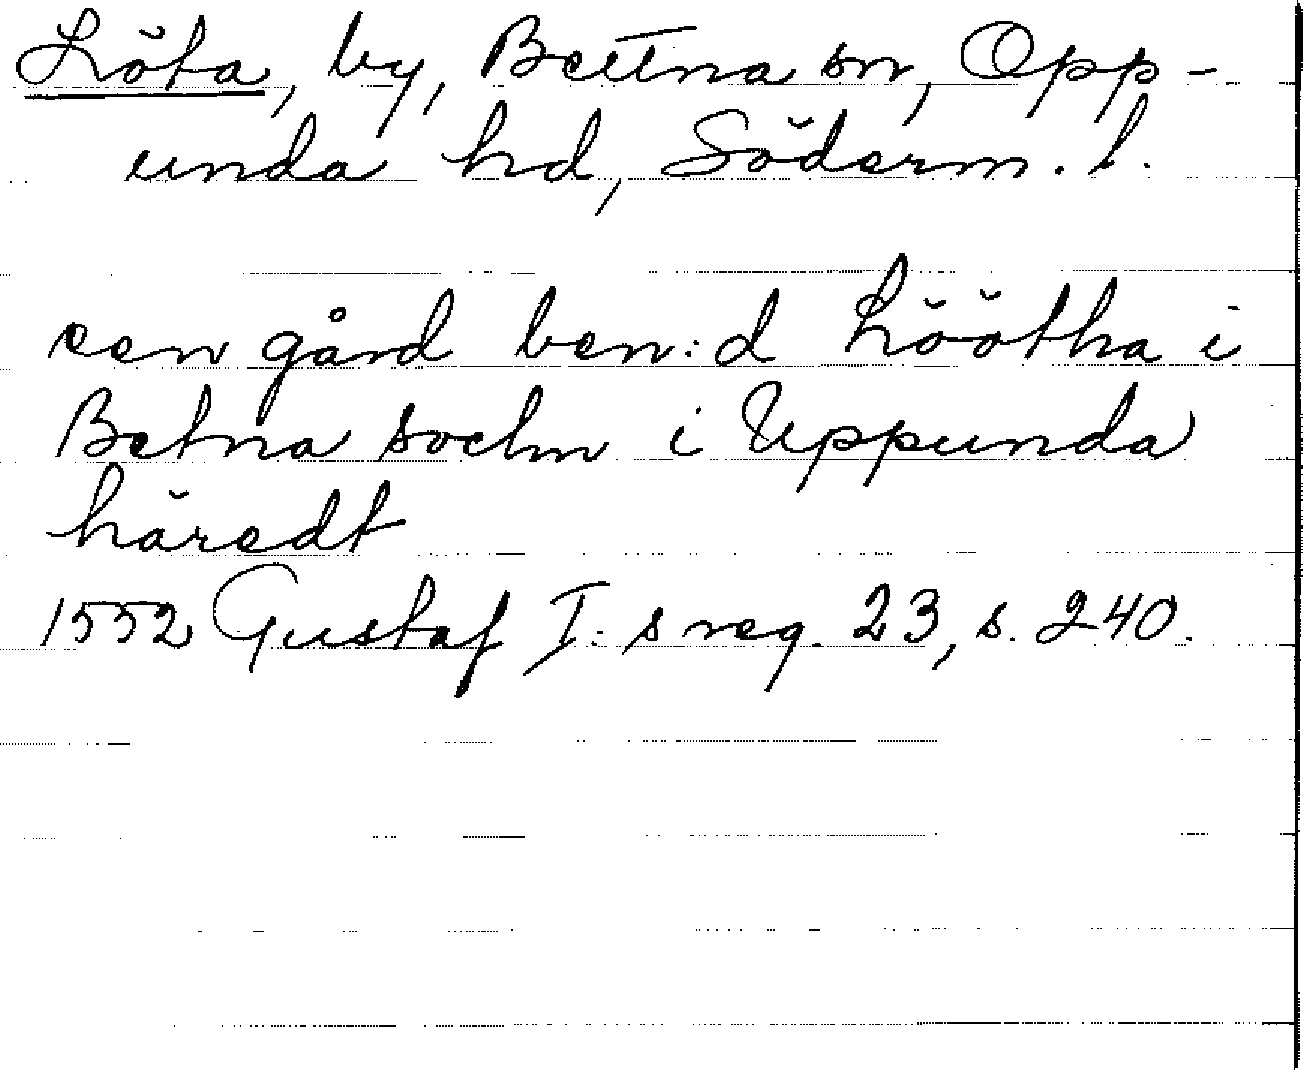 Löta, by, Bettna sn, Opp-
unda hd, Söderm. l.
een gård ben:d Löötha i
Betna sochn i Uppunda
häredt
1552 Gustaf I:s reg. 23, s. 240.